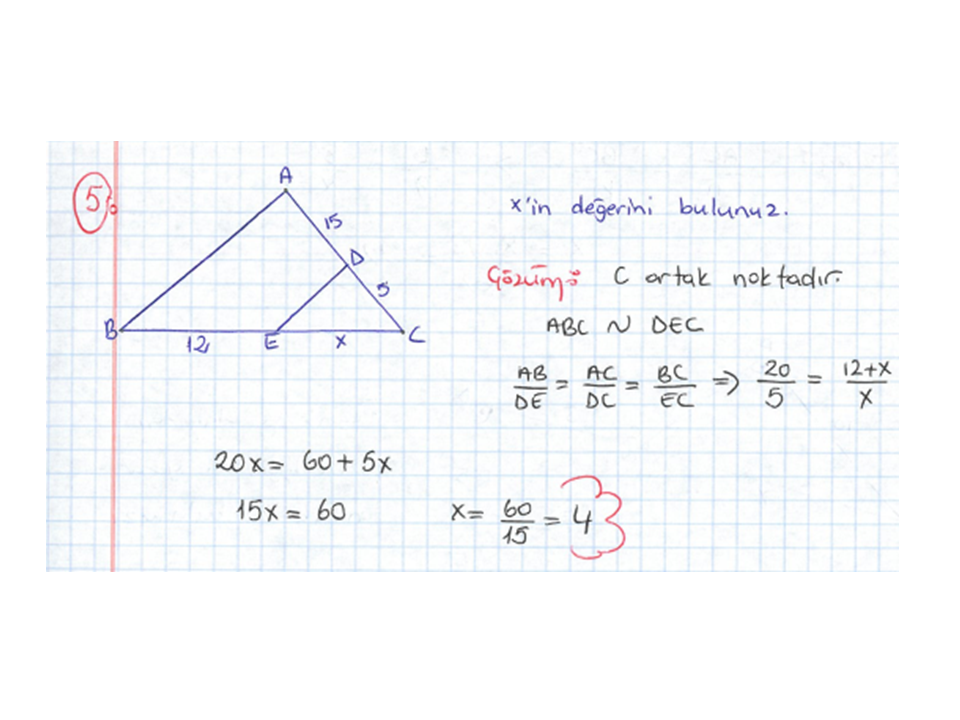 5:
A
15
D
5
B
12
E
x
C
x'in değerini bulunuz.
Çözüm: C ortak noktadır.
ABC ~ DEC
AB/DE = AC/DC = BC/EC ⇒ 20/5 = 12+x/x
20x = 60 + 5x
15x = 60
x = 60/15 = 4